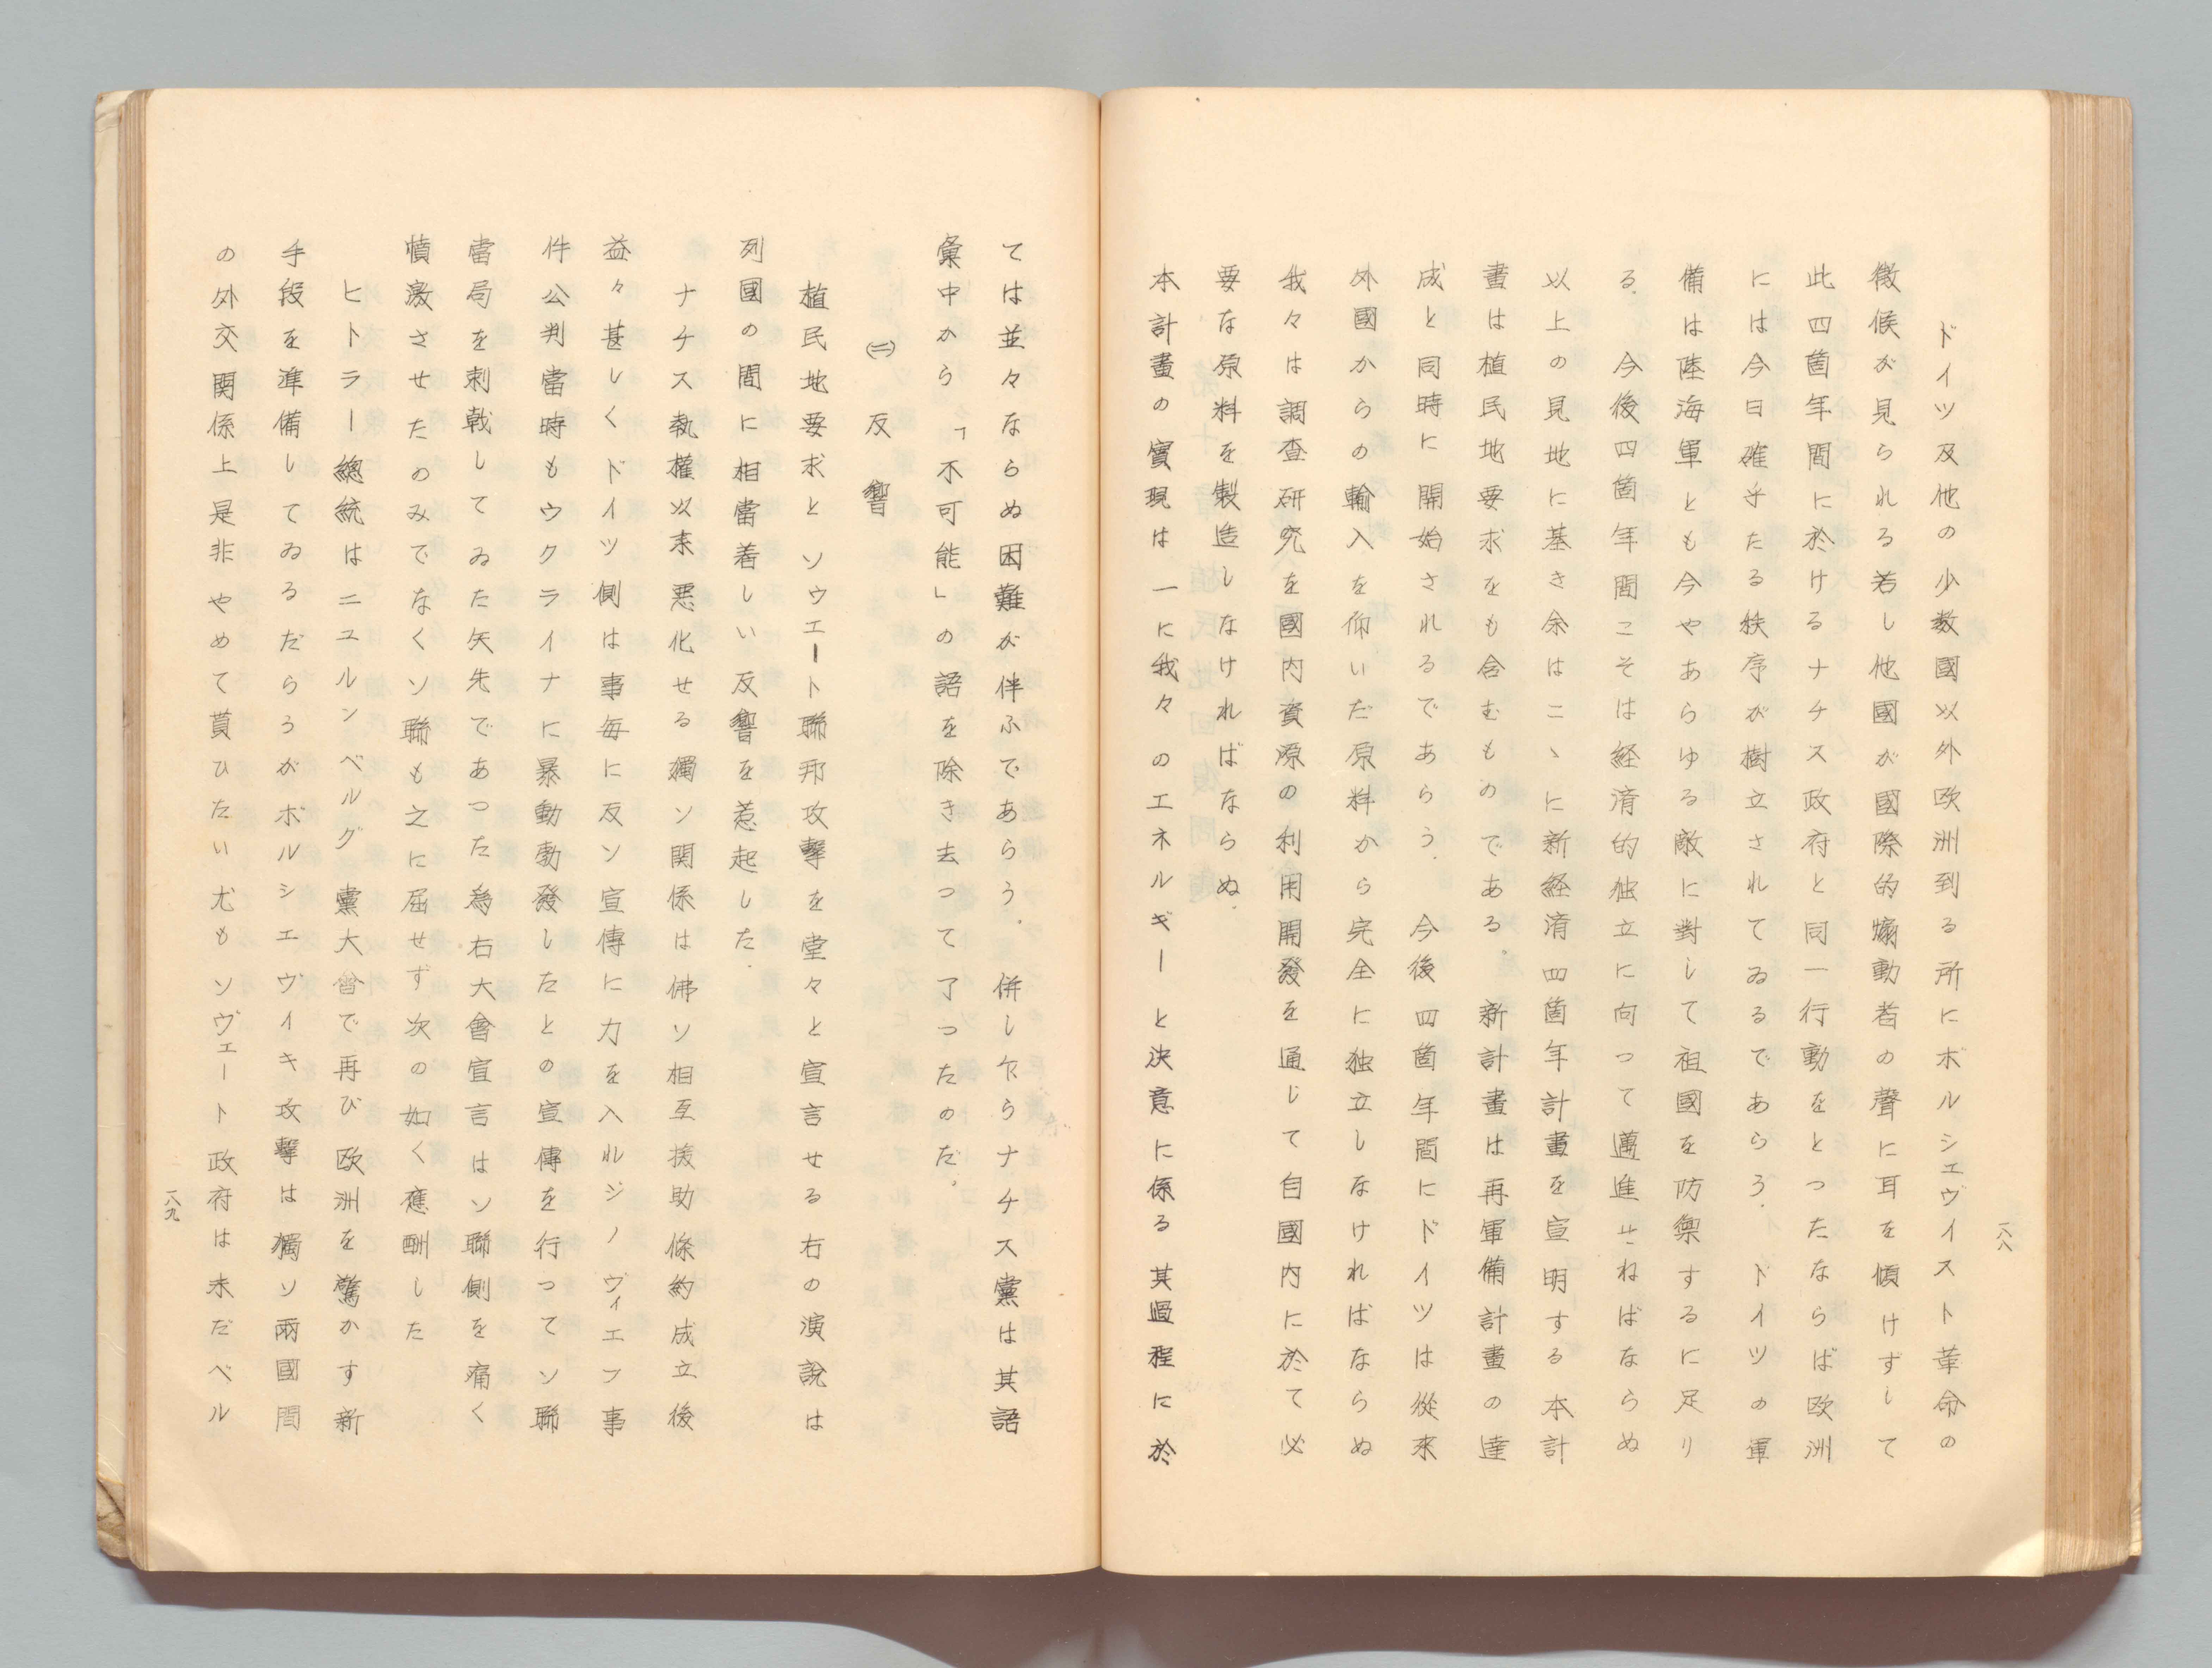 一八八
ドイツ及他の少数國以外欧洲到る所にボルシェヴイスト革命の
徴候が見られる若し他國が國際的煽動者の聲に耳を傾けずして
此四箇年間に於けるナチス政府と同一行動をとつたならば欧洲
には今日確乎たる秩序が樹立されてゐるであらう．ドイツの軍
備は陸海軍とも今やあらゆる敵に對して祖國を防禦するに足り
る．今後四箇年間こそは経済的独立に向つて邁進せねばならぬ
以上の見地に基き余はこゝに新経済四箇年計畫を宣明する本計
畫は植民地要求をも含むものである．新計畫は再軍備計畫の達
成と同時に開始されるであらう．今後四箇年間にドイツは從来
外國からの輸入を仰いだ原料から完全に独立しなければならぬ
我々は調査研究を國内資源の利用開發を通じて自國内に於て必
要な原料を製造しなければならぬ．
本計畫の實現は一に我々のエネルギーと決意に係る其過程に於
ては並々ならぬ困難が伴ふであらう．併し乍らナチス黨は其語
彙中から「不可能」の語を除き去つて了つたのだ．
㈡　反響
植民地要求とソウエート聯邦攻擊を堂々と宣言せる右の演説は
列國の間に相當着しい反響を惹起した．
ナチス執権以来悪化せる獨ソ関係は佛ソ相互援助條約成立後
益々甚しくドイツ側は事毎に反ソ宣傳に力を入れジノヴィエフ事
件公判當時もウクライナに暴動勃發したとの宣傳を行つてソ聯
當局を刺戟してゐた矢先であつた為右大會宣言はソ聯側を痛く
憤激させたのみでなくソ聯も之に屈せず次の如く應酬した
ヒトラー總統はニユルンベルグ黨大會で再び欧洲を驚かす新
手段を準備してゐるだらうがボルシエヴイキ攻擊は獨ソ兩國間
の外交関係上是非やめて貰ひたい尤もソヴエート政府は未だベル
一八九